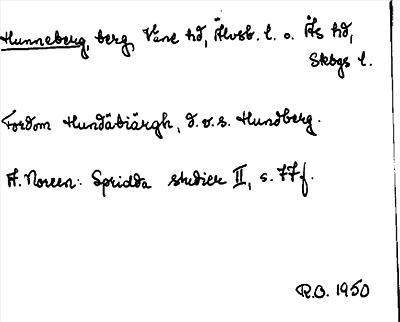 Hunneberg, berg, Väne hd, Älvsb. l. o. Ås hd,
Skbgs l.
Fordom Hundäbiärgh, d.v.s. Hundberg.
A. Noreen: Spridda studier II, s. 77f.
R.O. 1950